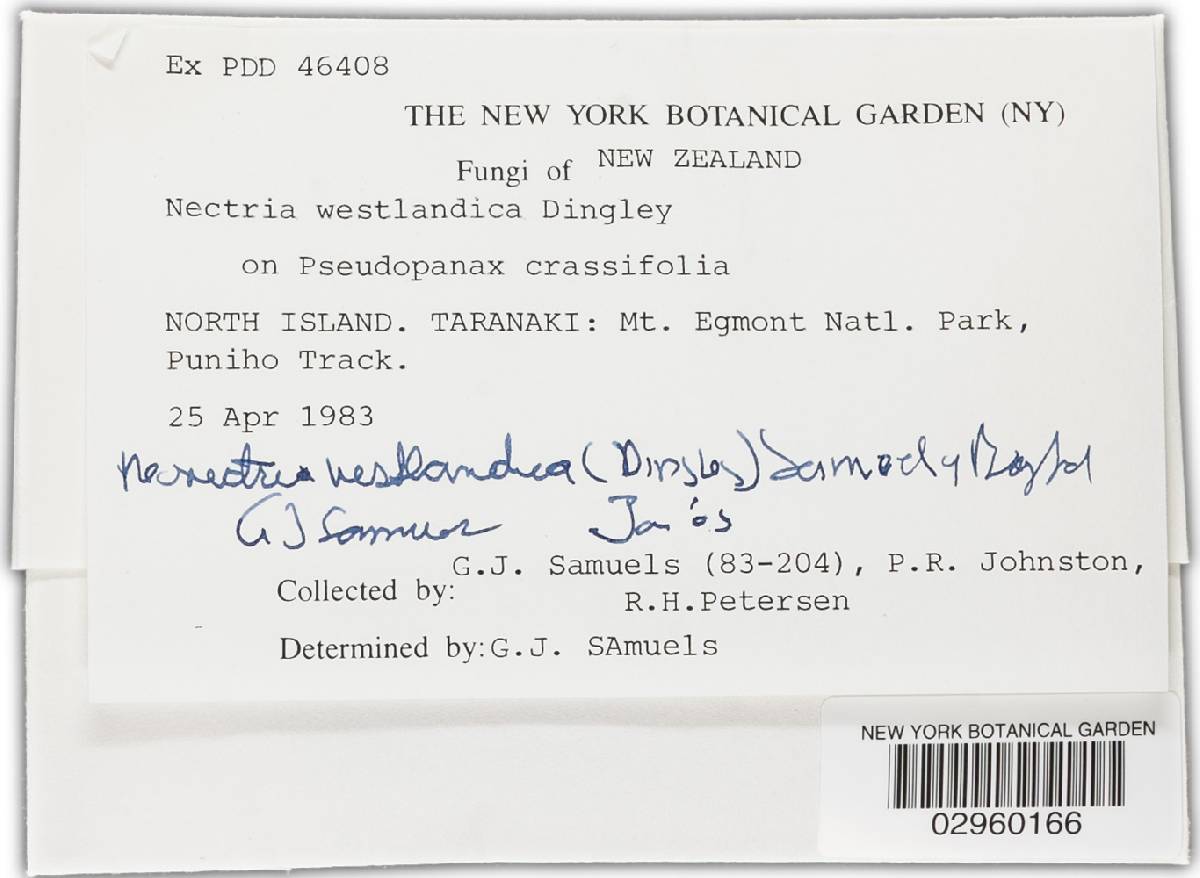 Ex PDD 46408
THE NEW YORK BOTANICAL GARDEN (NY)
Fungi of NEW ZEALAND
Nectria westlandica Dingley
on Pseudopanax crassifolia
NORTH ISLAND. TARANAKI: Mt. Egmont Natl. Park,
Puniho Track.
25 Apr 1983
westlandica (Dingley)
GJ Samuels Jan '05
G.J. Samuels (83-204), P.R. Johnston,
Collected by:
R.H.Petersen
Determined by: G.J. SAmuels
NEW YORK BOTANICAL GARDEN
02960166